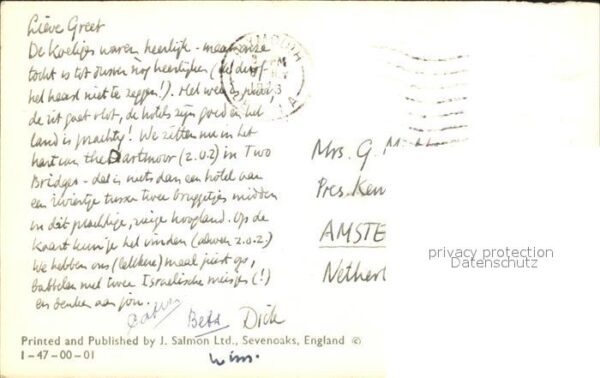 Lieve Greet
De Koekjes waren heerlijk - maar onze
tocht is tot dusver nog heerlijker (ik durf
het haast niet te zeggen!). Het weer is
de rit gaat vlot, de hotels zijn goed en het
land is prachtig! We zitten nu in het
hart van the Dartmoor (z.o.z) in Two
Bridges - dat is niets dan een hotel aan
een riviertje tussen twee bruggetjes midden
in dit prachtige, ruige hoogland. Op de
kaart kun je het vinden (alweer z.o.z.)
We hebben ons (lekkere) maal juist op,
babbelen met twee Israelische meisjes (!)
en denken aan jou.
Bets Dick
Wim.
Mrs. G. M
Pres. Ken
AMSTE
Nether
privacy protection
Datenschutz
Printed and Published by J. Salmon Ltd., Sevenoaks, England ©
1-47-00-01